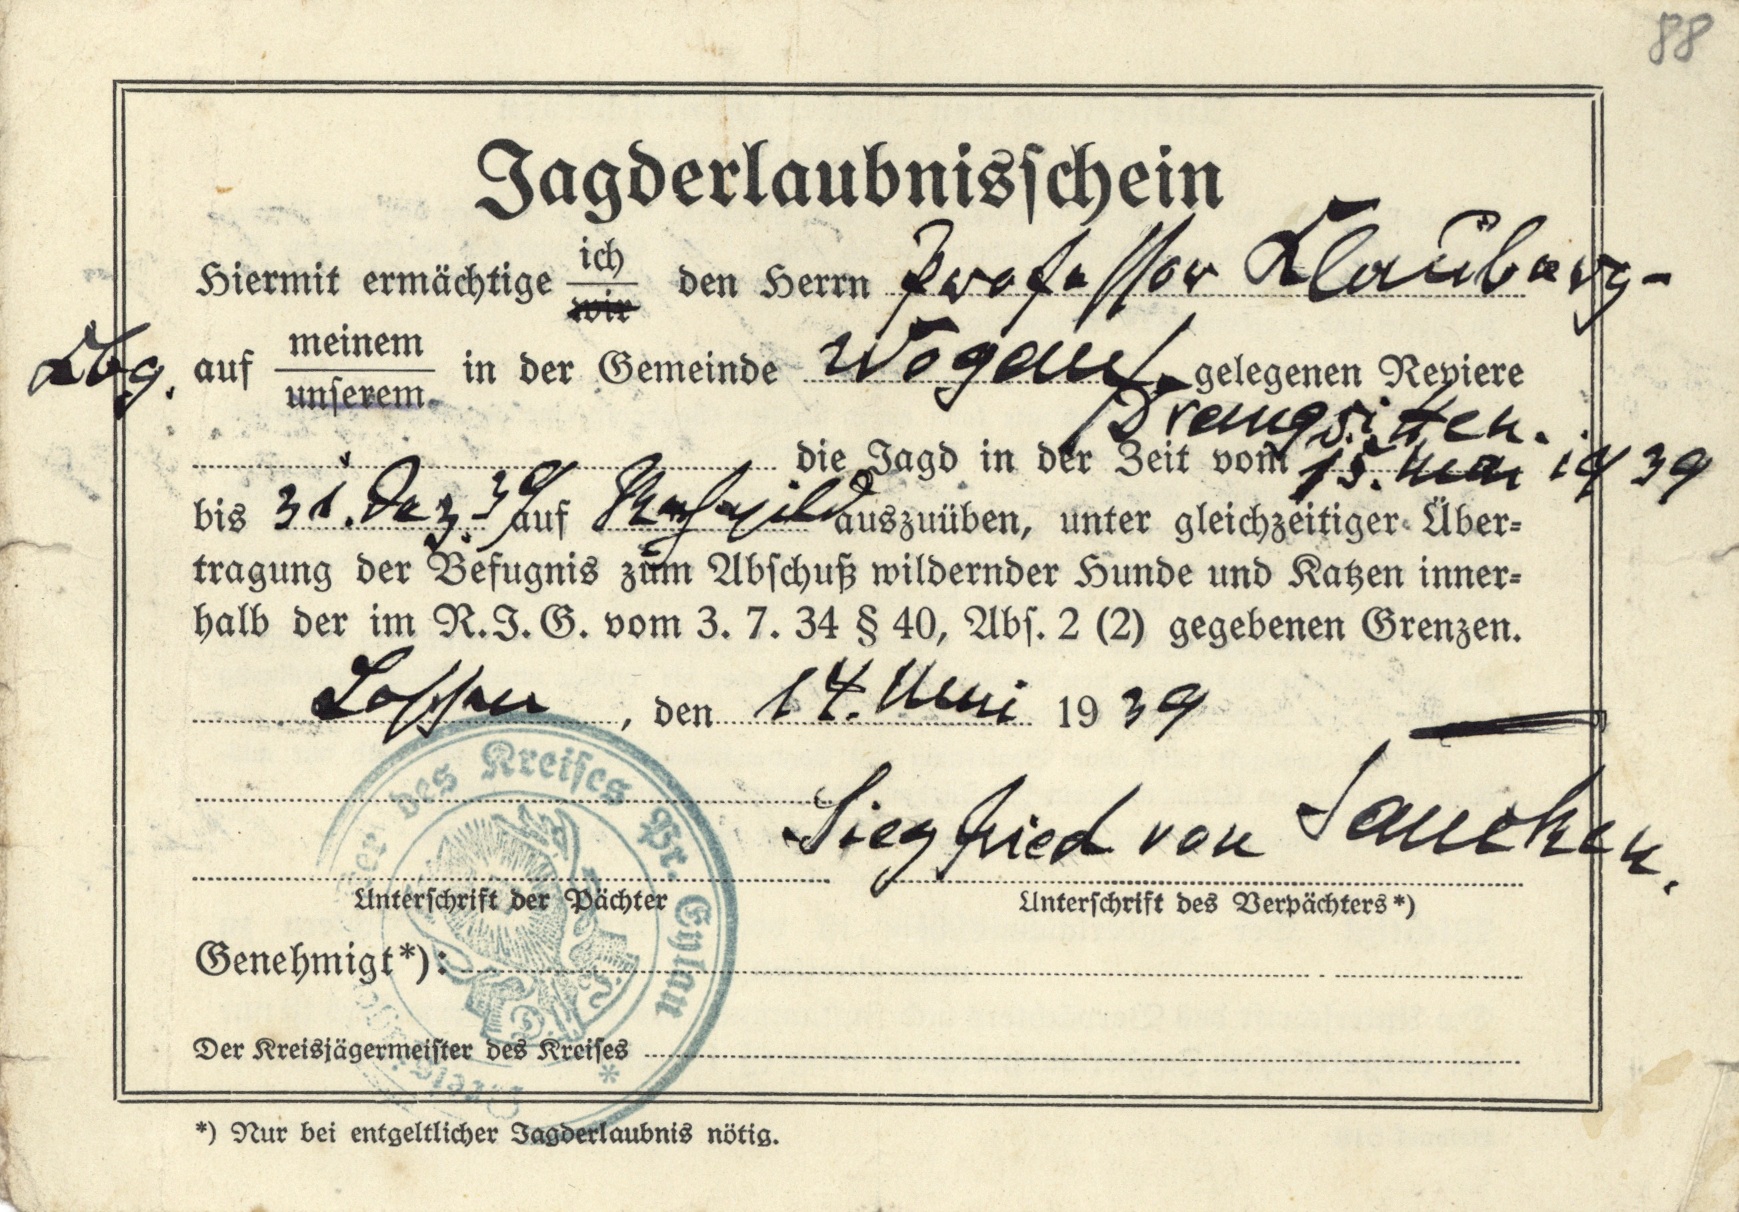 88
Jagderlaubnisschein
Hiermit ermächtige ich den Herrn Professor Clauberg-
wir
Kbg. auf meinem in der Gemeinde Wogau, gelegenen Reviere
unserem
Drangsitten.
die Jagd in der Zeit vom 15. Mai 1939
bis 31. Dez. 39 auf Rehwild auszuüben, unter gleichzeitiger Über=
tragung der Befugnis zum Abschuß wildernder Hunde und Katzen inner=
halb der im R.J.G. vom 3. 7. 34 § 40, Abs. 2 (2) gegebenen Grenzen.
, den 14. Mai 1939
Siegfried von Saucken.
Unterschrift der Pächter Unterschrift des Verpächters*)
Genehmigt*):
Der Kreisjägermeister des Kreises
des Kreises Pr. Eylau
*) Nur bei entgeltlicher Jagderlaubnis nötig.